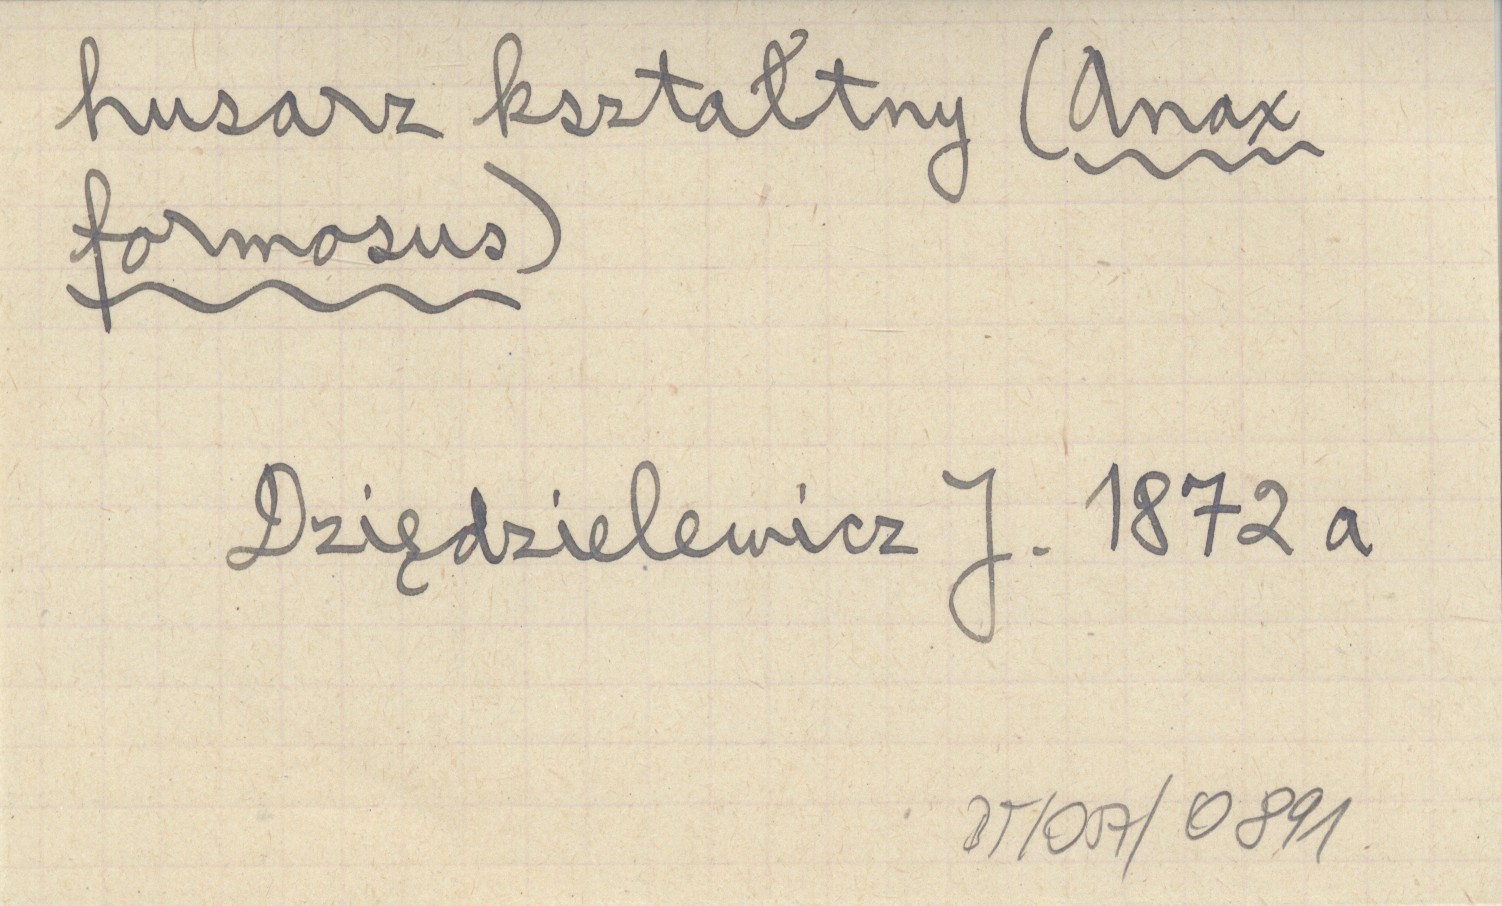 husarz kształtny (Anax
formosus)
Dziędzielewicz J. 1872 a
0891